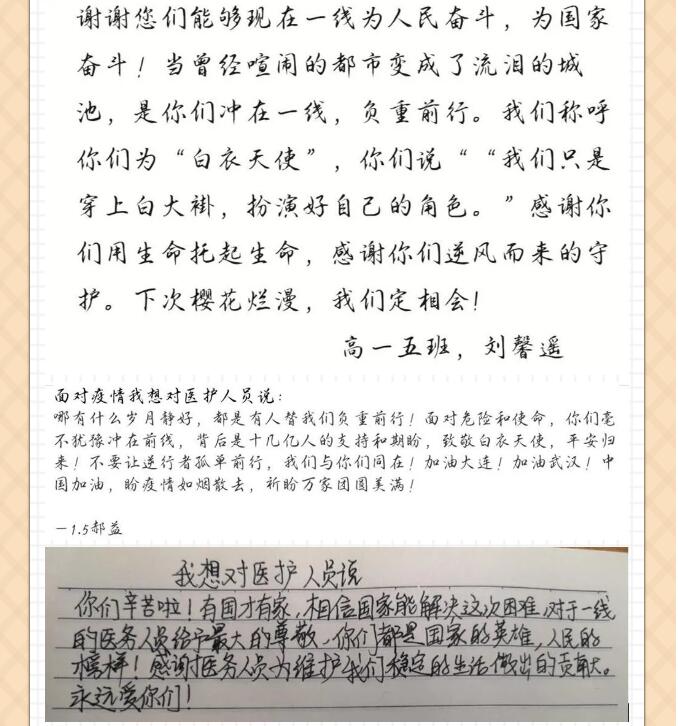 谢谢您们能够现在一线为人民奋斗，为国家
奋斗！当曾经喧闹的都市变成了流泪的城
池，是你们冲在一线，负重前行。我们称呼
你们为“白衣天使”，你们说““我们只是
穿上白大褂，扮演好自己的角色。”感谢你
们用生命托起生命，感谢你们逆风而来的守
护。下次樱花烂漫，我们定相会！
高一五班，刘馨遥
面对疫情我想对医护人员说：
哪有什么岁月静好，都是有人替我们负重前行！面对危险和使命，你们毫
不犹豫冲在前线，背后是十几亿人的支持和期盼，致敬白衣天使，平安归
来！不要让逆行者孤单前行，我们与你们同在！加油大连！加油武汉！中
国加油，盼疫情如烟散去，祈盼万家团圆美满！
－1.5郝益
我想对医护人员说
你们辛苦啦！有国才有家，相信国家能解决这次困难，对于一线
的医务人员给予最大的尊敬，你们都是国家的英雄，人民的
榜样！感谢医务人员为维护我们稳定的生活做出的贡献。
永远爱你们！